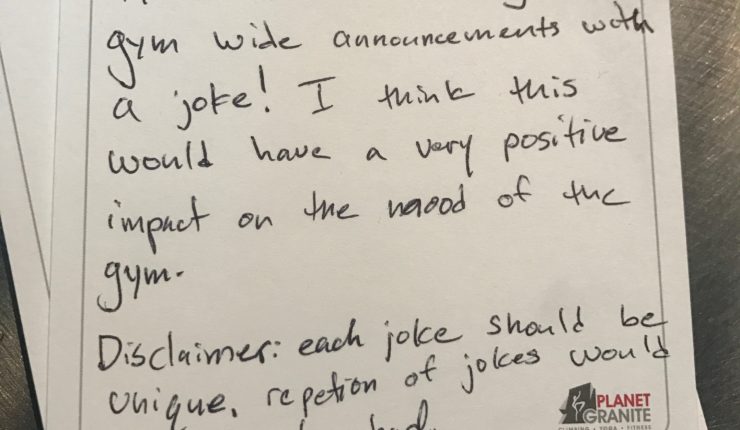 gym wide announcements with
a joke! I think this
would have a very positive
impact on the mood of the
gym.
Disclaimer: each joke should be
unique, repetion of jokes would
PLANET
GRANITE
CLIMBING • YOGA • FITNESS